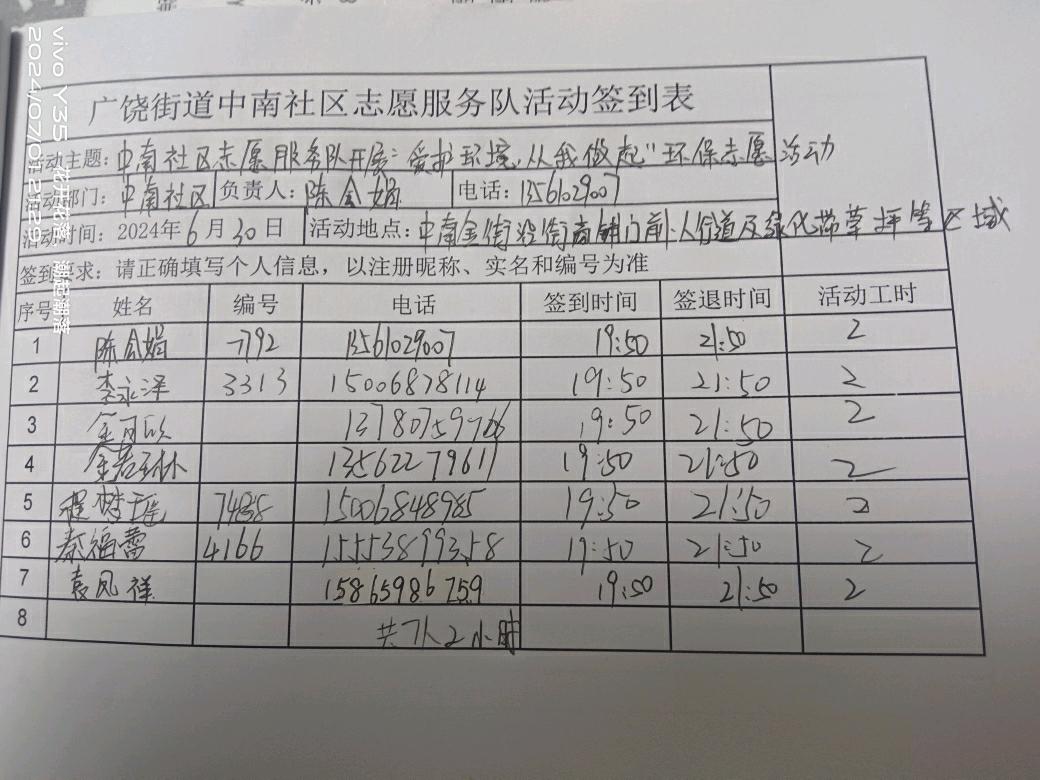 广饶街道中南社区志愿服务队活动签到表
活动主题：中南社区志愿服务队开展"爱护环境，从我做起"环保志愿活动
活动部门：中南社区 负责人：陈会娟 电话：13561029007
活动时间：2024年6月30日 活动地点：中南金街沿街商铺门前人行道及绿化带草坪等区域
签到要求：请正确填写个人信息，以注册昵称、实名和编号为准
序号 姓名 编号 电话 签到时间 签退时间 活动工时
1 陈会娟 7192 13561029007 19:50 21:50 2
2 李永泽 3313 15006878114 19:50 21:50 2
3 金可欣 13780759766 19:50 21:50 2
4 金若琳 13562279611 19:50 21:50 2
5 程梦瑶 7488 15006848985 19:50 21:50 2
6 秦福蕾 4166 15553899358 19:50 21:50 2
7 袁凤祥 15865986759 19:50 21:50 2
8 共7人2小时
vivo Y35